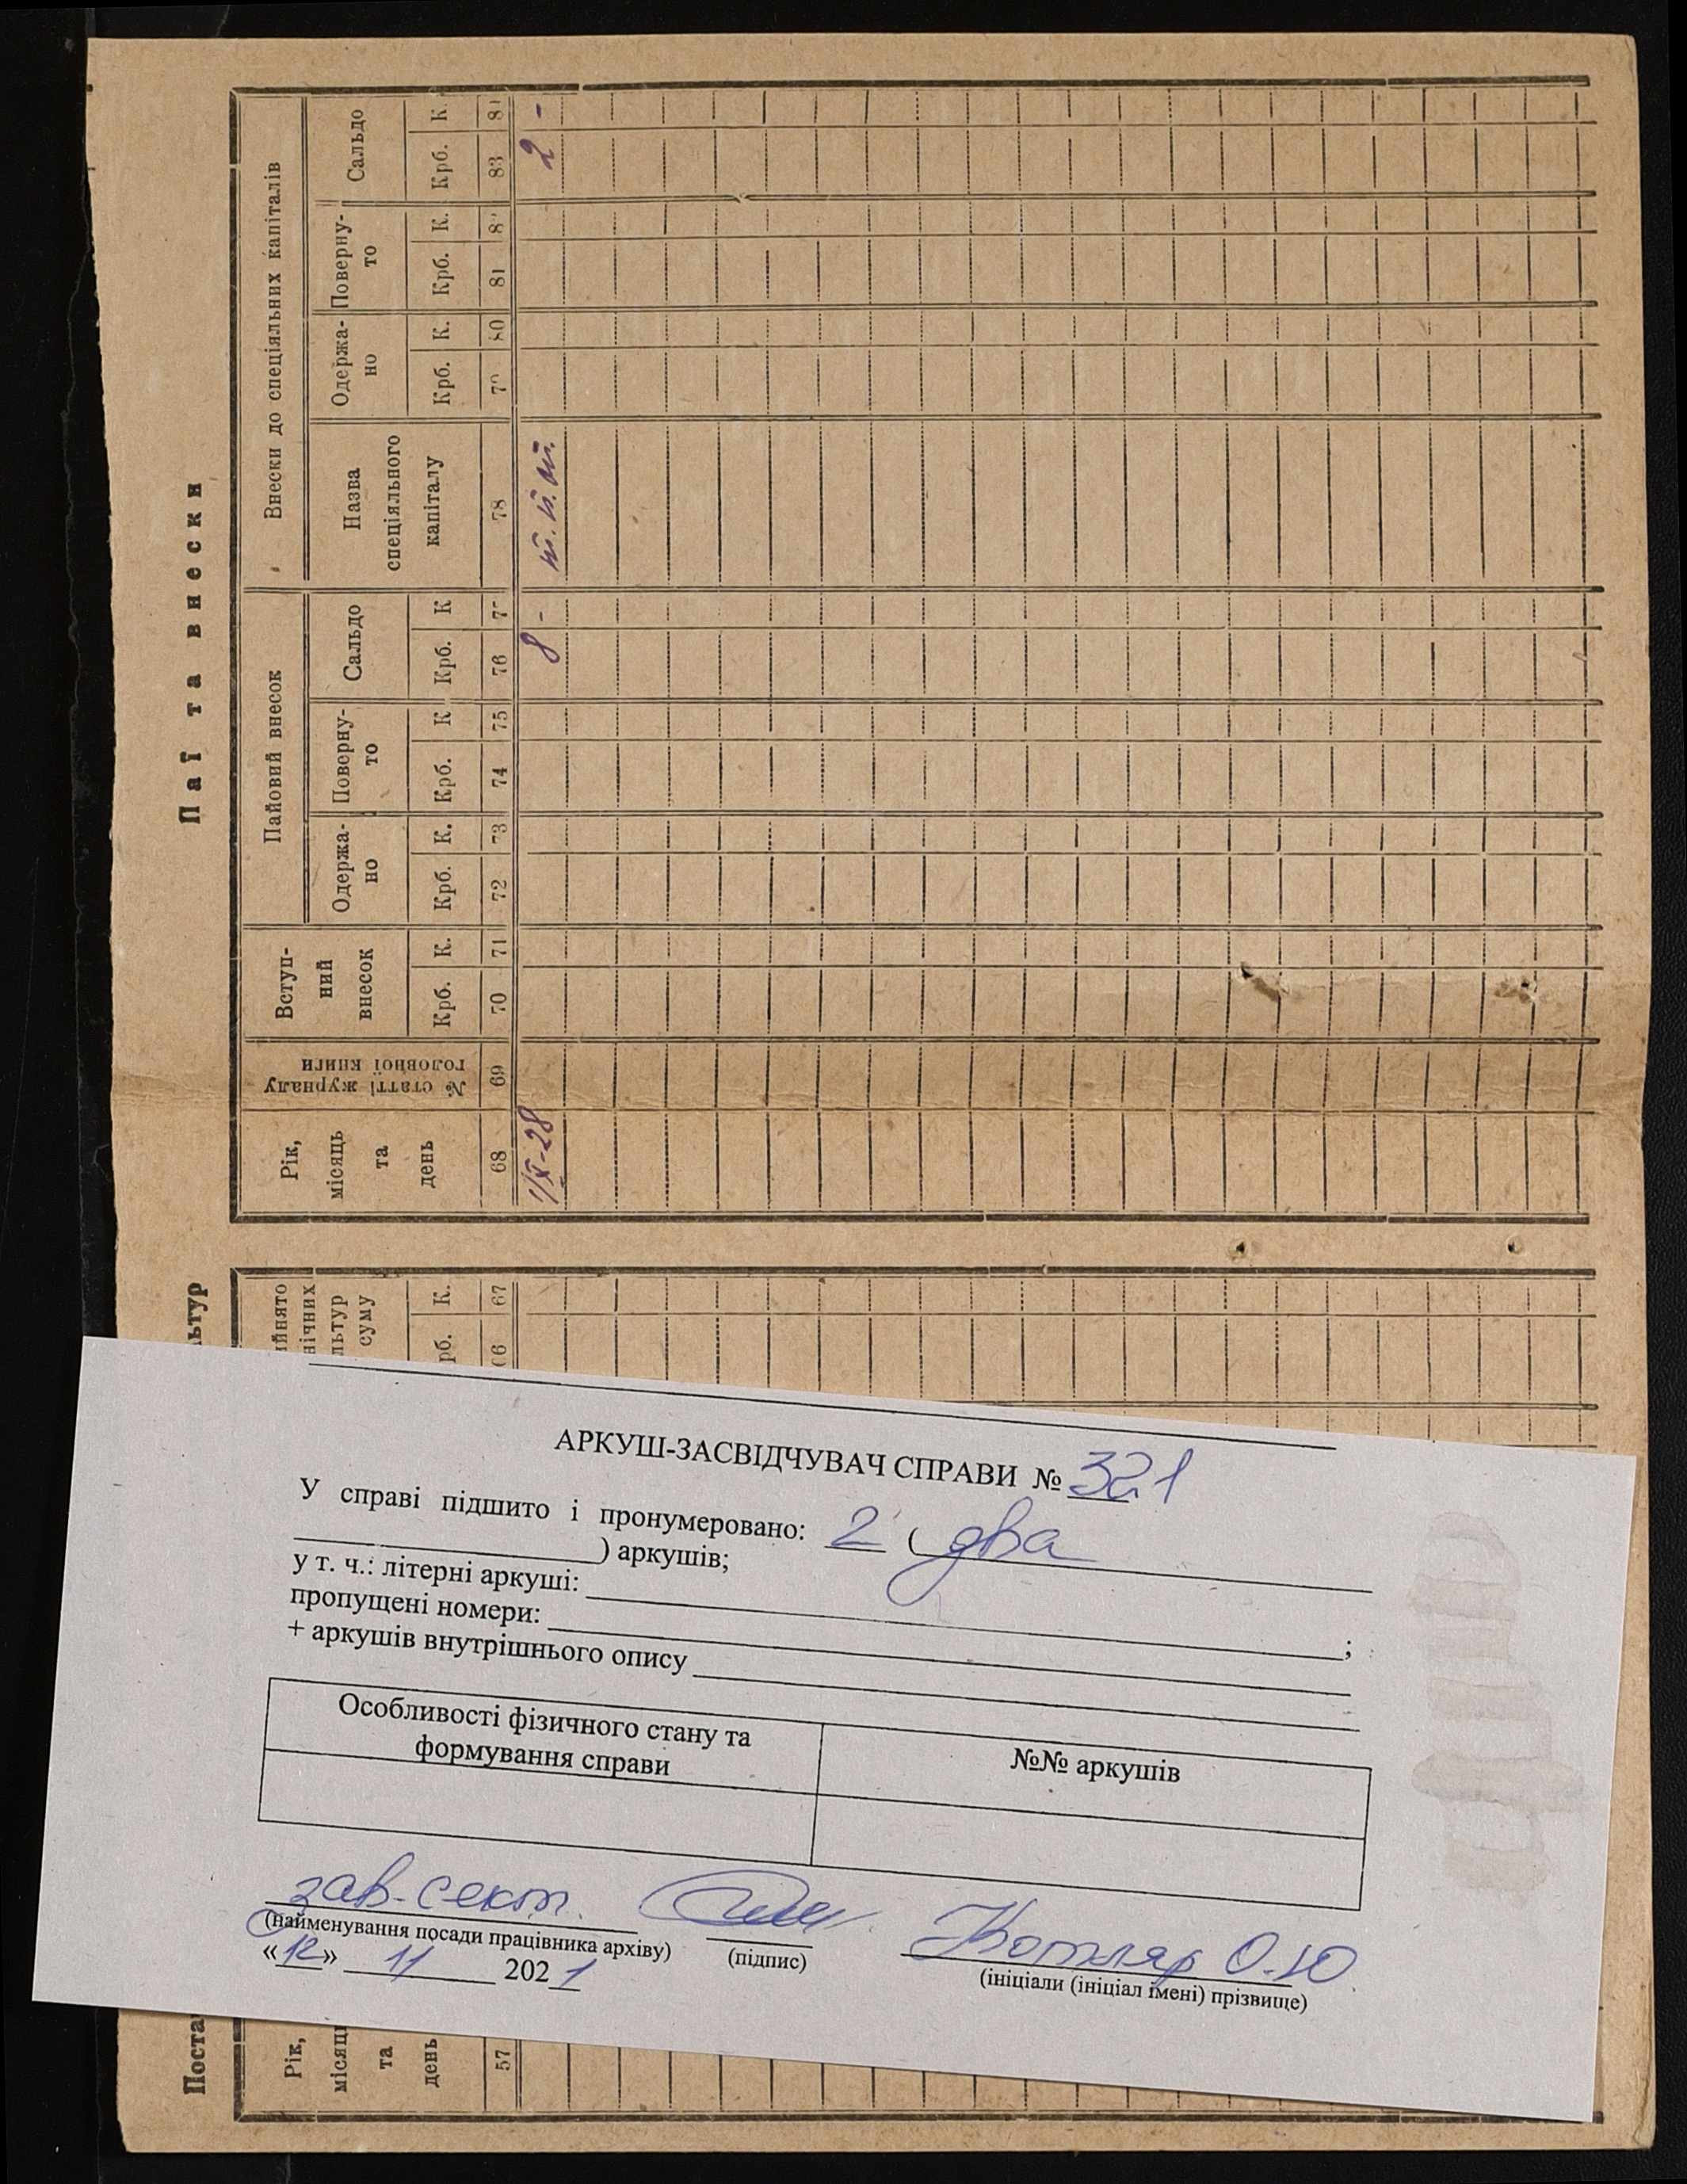 Паї та внески
Рік, місяць та день
№ статті журналу головної книги
Вступ-
ний
внесок
Пайовий внесок
Внески до спеціяльних капіталів
Одержа-
но
Поверну-
то
Сальдо
Назва
спеціяльного
капіталу
Одержа-
но
Поверну-
то
Сальдо
Крб. К. Крб. К. Крб. К Крб. К Крб. К. Крб. К. Крб. К
68 69 70 71 72 73 74 75 76 77 78 79 80 81 82 83 84
1/X-28 8 - 2 -
льтур
ійнято
нічних
льтур
суму
рб. К.
66 67
Поста
Рік,
місяць
та
день
57
АРКУШ-ЗАСВІДЧУВАЧ СПРАВИ № 321
У справі підшито і пронумеровано: 2 ( два
) аркушів;
у т. ч.: літерні аркуші:
пропущені номери: ;
+ аркушів внутрішнього опису
Особливості фізичного стану та
формування справи
№№ аркушів
зав. сект. Котляр О.Ю
(найменування посади працівника архіву) (підпис) (ініціали (ініціал імені) прізвище)
«12» 11 2021